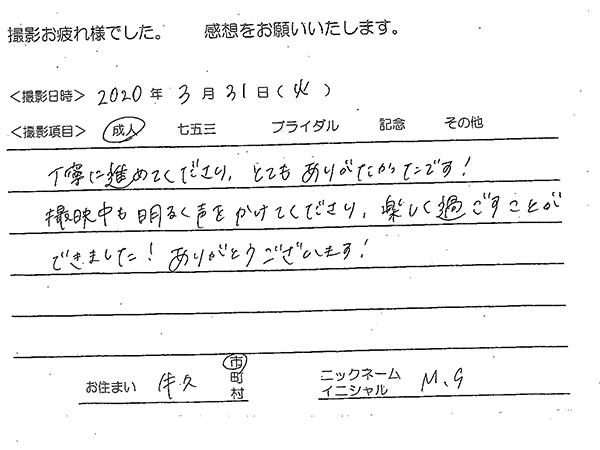 撮影お疲れ様でした。 感想をお願いいたします。
<撮影日時> 2020 年 3 月 31 日 (火)
<撮影項目> 成人 七五三 ブライダル 記念 その他
丁寧に進めてくださり、とても ありがたかったです!
撮映中も明るく声をかけてくださり、楽しく過ごすことが
できました! ありがとうございます!
お住まい 牛久 市町村 ニックネーム イニシャル M.G